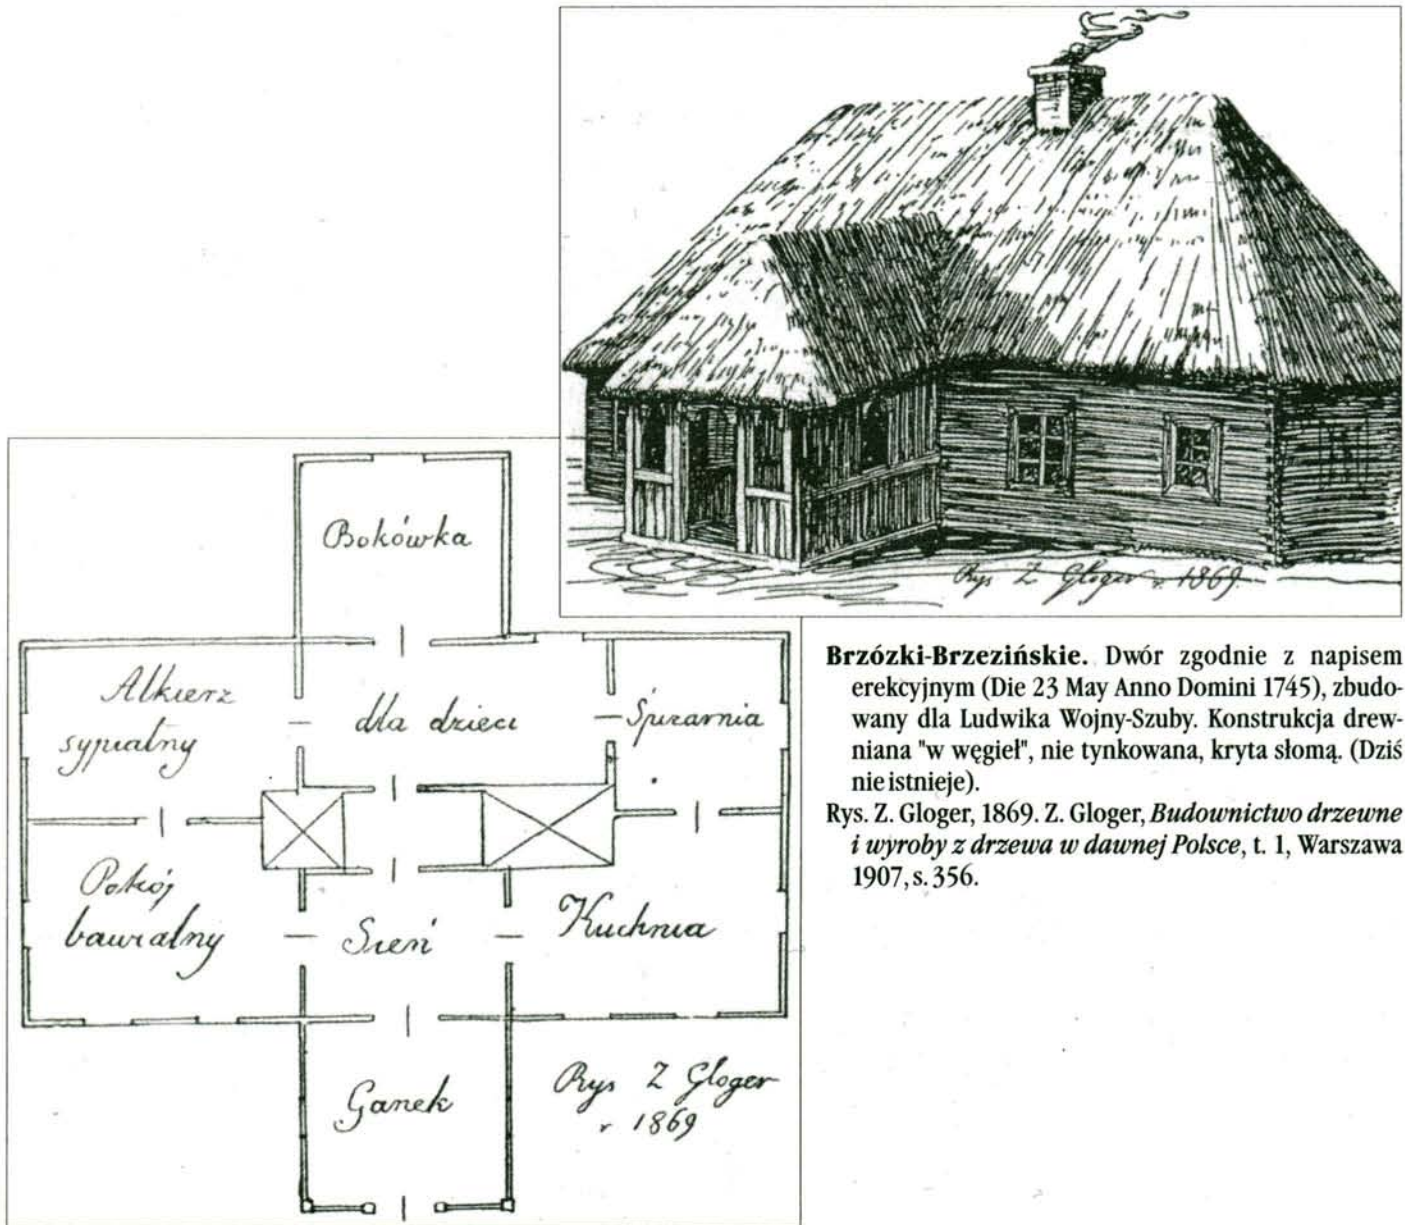 Rys Z Gloger r. 1869.
Bokówka
Alkierz
sypialny
dla dzieci
Śpiżarnia
Pokój
bawialny
Sień
Kuchnia
Ganek
Rys Z Gloger
r 1869
Brzózki-Brzezińskie. Dwór zgodnie z napisem
erekcyjnym (Die 23 May Anno Domini 1745), zbudo-
wany dla Ludwika Wojny-Szuby. Konstrukcja drew-
niana "w węgieł", nie tynkowana, kryta słomą. (Dziś
nie istnieje).
Rys. Z. Gloger, 1869. Z. Gloger, Budownictwo drzewne
i wyroby z drzewa w dawnej Polsce, t. 1, Warszawa
1907, s. 356.